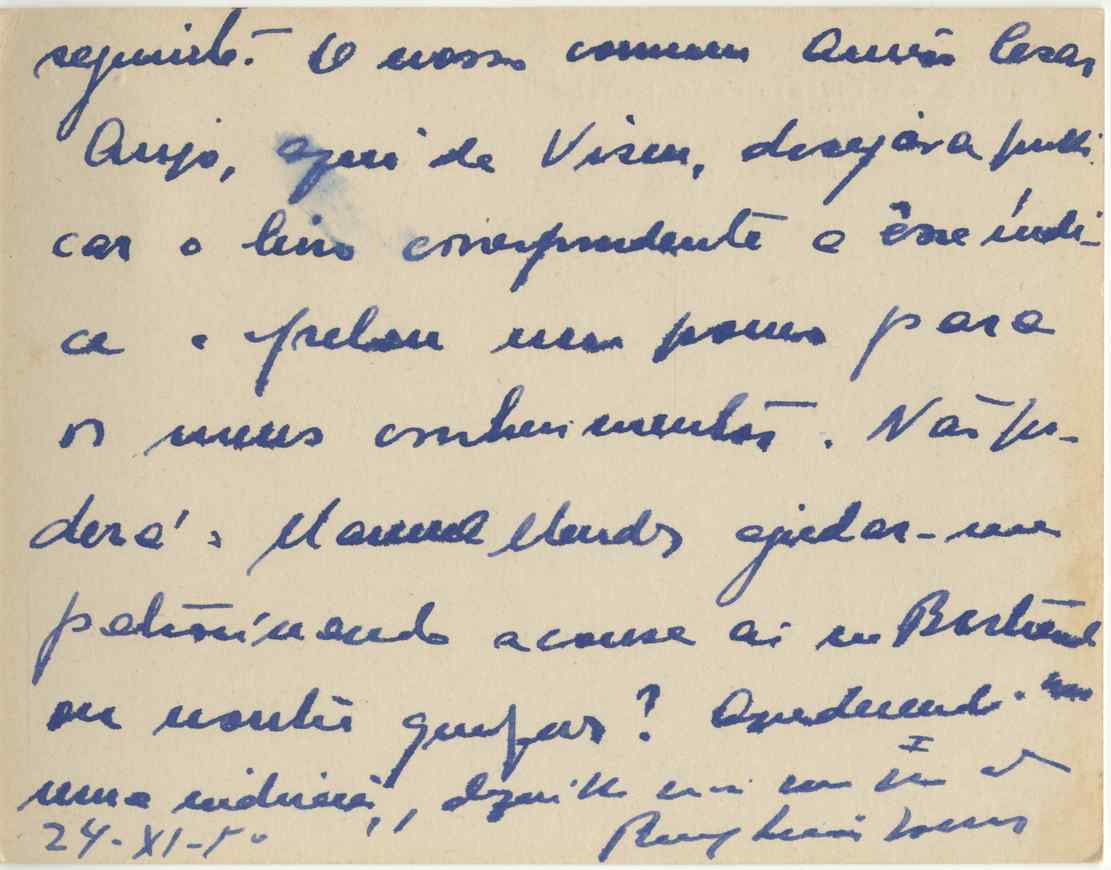 seguinte. O nosso comum Amigo Cesar
Anjo, aqui de Viseu, desejava publi-
car o livro correspondente a êsse índi-
ce e falou um pouco para
os meus conhecimentos. Não po-
derá o Manuel Mendes ajudar-me
patrocinando a cousa aí na Bertrand
ou noutro quaisquer? Agradecendo
uma indicação,
24-XI-50